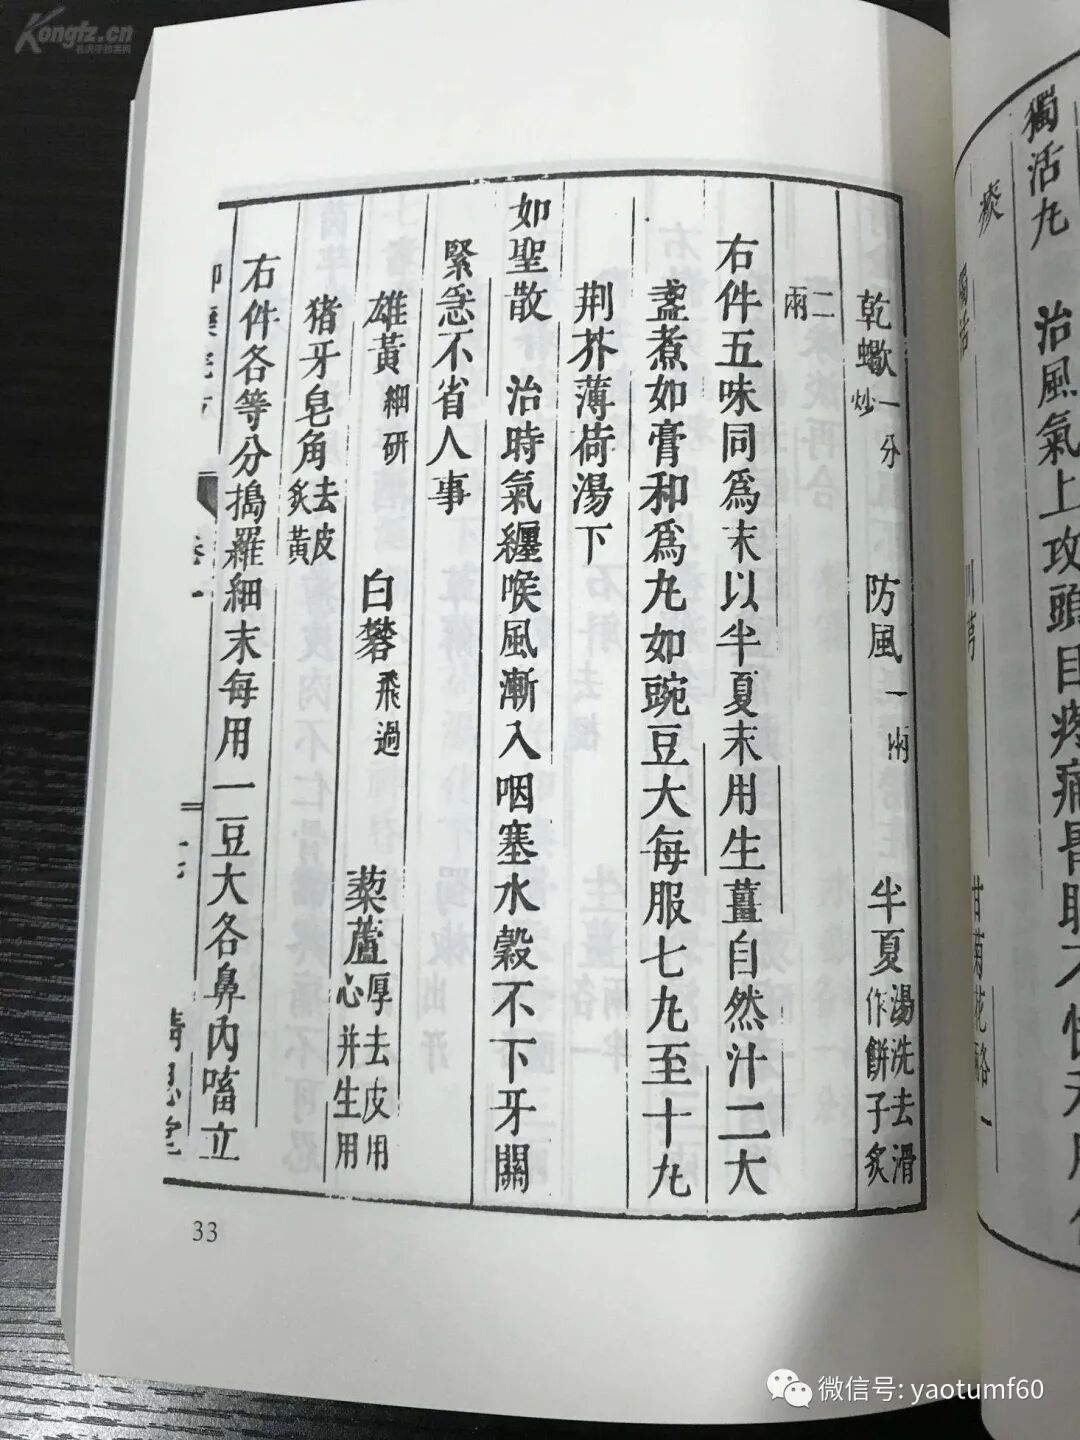 Kongfz.cn
孔夫子旧书网
獨活丸　治風氣上攻頭目疼痛
痰
乾蠍一分炒　防風一兩　半夏湯洗去滑作餅子炙
二兩
右件五味同為末以半夏末用生薑自然汁二大
盞煮如膏和為丸如豌豆大每服七丸至十丸
荆芥薄荷湯下
如聖散　治時氣纏喉風漸入咽塞水穀不下牙關
緊急不省人事
雄黃細研　白礬飛過　藜蘆厚去皮用心并生用
猪牙皂角去皮炙黃
右件各等分搗羅細末每用一豆大各鼻內㗜立
33
微信号: yaotumf60